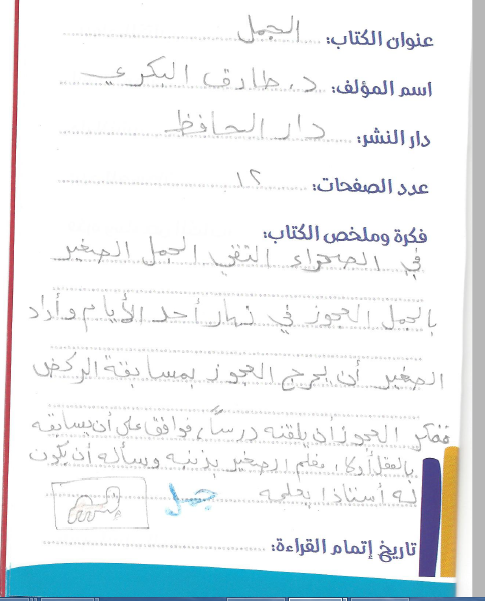 عنوان الكتاب: الجمل
اسم المؤلف: د. طارق البكري
دار النشر: دار الحافظ
عدد الصفحات: ١٢
فكرة وملخص الكتاب:
في الصحراء التقى الجمل الصغير
بالجمل العجوز في نهار أحد الأيام وأراد
الصغير أن يحرج العجوز بمسابقة الركض
ففكر العجوز أن يلقنه درساً، فوافق على أن يسابقه
بالعقل أولا، فعلم الصغير بذنبه وسأله أن يكون
له أستاذا يعلمه
جمل
تاريخ إتمام القراءة: